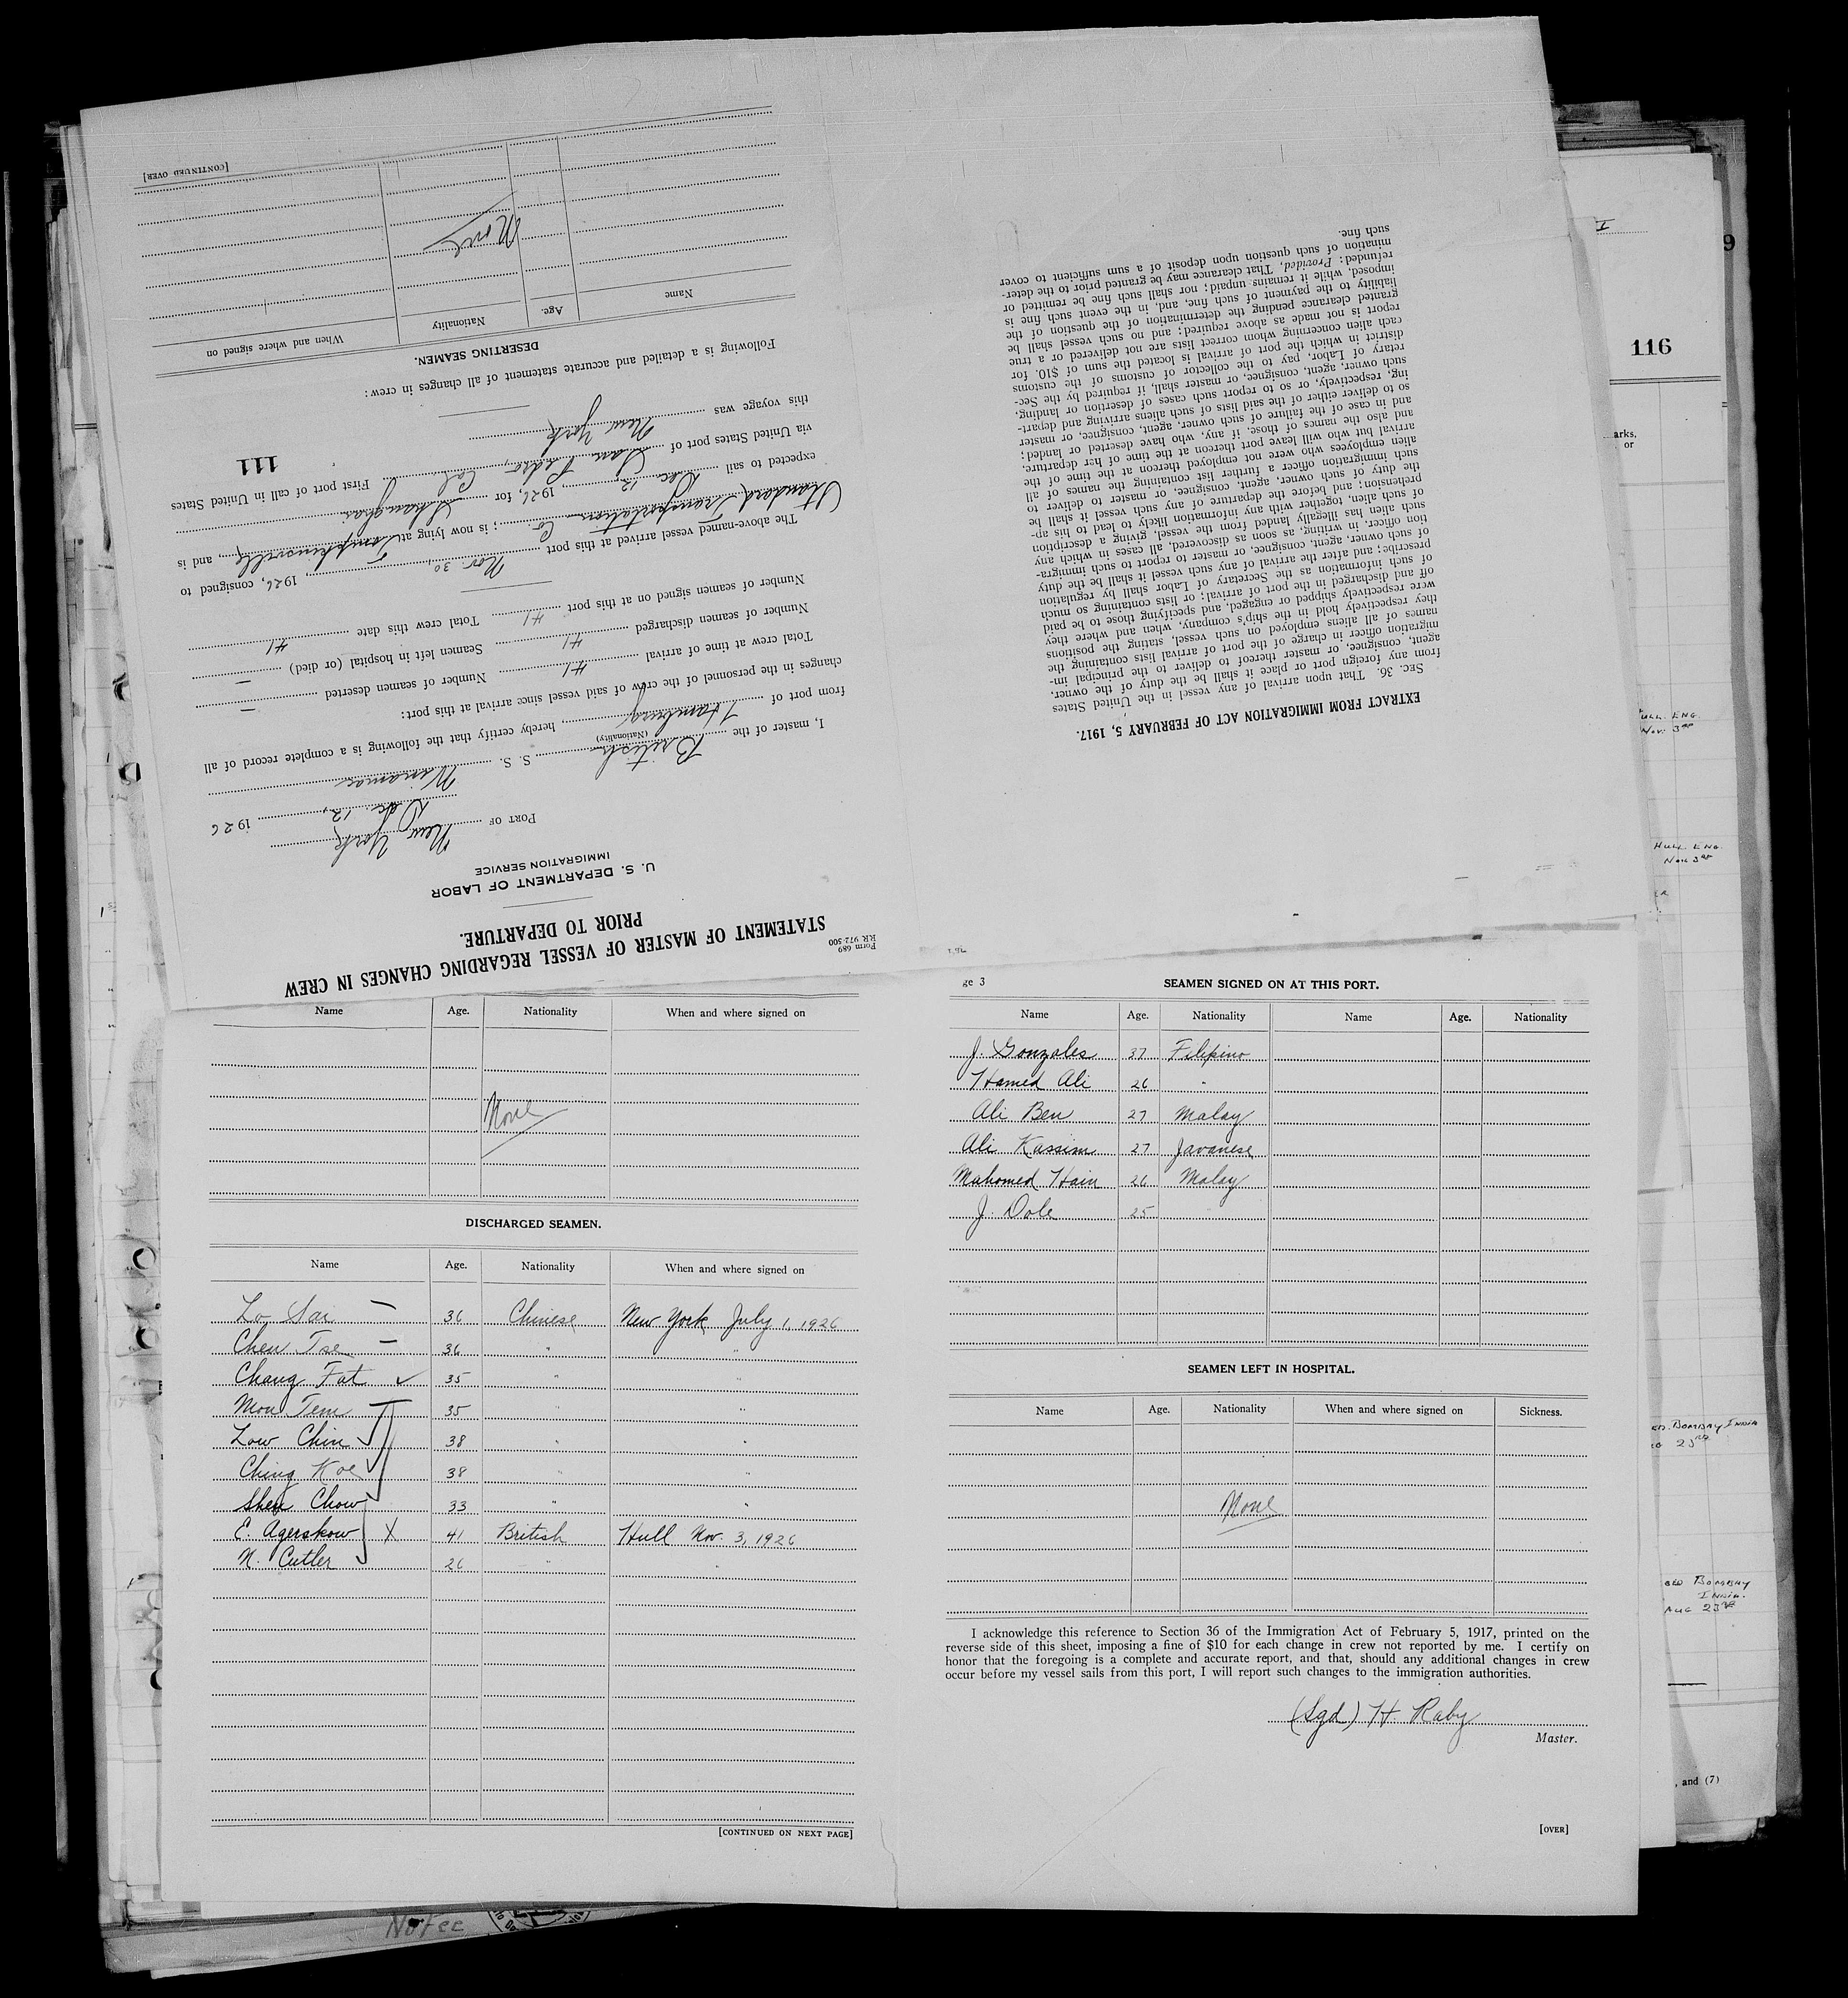 Form 689
RR 972-500
STATEMENT OF MASTER OF VESSEL REGARDING CHANGES IN CREW
PRIOR TO DEPARTURE.
U. S. DEPARTMENT OF LABOR
IMMIGRATION SERVICE
PORT OF New York
Dec. 12, 1926
I, master of the British S. S. Winamac
(Nationality)
from port of Hamburg, hereby certify that the following is a complete record of all
changes in the personnel of the crew of said vessel since arrival at this port:
Total crew at time of arrival 41 Number of seamen deserted —
Number of seamen discharged 41 Seamen left in hospital (or died) —
Number of seamen signed on at this port 41 Total crew this date 41
The above-named vessel arrived at this port Nov. 30, 1926, consigned to
Standard Transportation Co; is now lying at Tompkinsville, and is
expected to sail Dec 12, 1926, for Shanghai
via United States port of San Pedro, Cal First port of call in United States
this voyage was New York
111
Following is a detailed and accurate statement of all changes in crew:
DESERTING SEAMEN.
Name Age. Nationality When and where signed on
None
[CONTINUED OVER]
EXTRACT FROM IMMIGRATION ACT OF FEBRUARY 5, 1917.
SEC. 36. That upon arrival of any vessel in the United States
from any foreign port or place it shall be the duty of the owner,
agent, consignee, or master thereof to deliver to the principal im-
migration officer in charge of the port of arrival lists containing the
names of all aliens employed on such vessel, stating the positions
they respectively hold in the ship's company, when and where they
were respectively shipped or engaged, and specifying those to be paid
off and discharged in the port of arrival; or lists containing so much
of such information as the Secretary of Labor shall by regulation
prescribe; and after the arrival of any such vessel it shall be the duty
of such owner, agent, consignee, or master to report to such immigra-
tion officer, in writing, as soon as discovered, all cases in which any
such alien has illegally landed from the vessel, giving a description
of such alien, together with any information likely to lead to his ap-
prehension; and before the departure of any such vessel it shall be
the duty of such owner, agent, consignee, or master to deliver to
such immigration officer a further list containing the names of all
alien employees who were not employed thereon at the time of the
arrival but who will leave port thereon at the time of her departure,
and also the names of those, if any, who have deserted or landed;
and in case of the failure of such owner, agent, consignee, or master
so to deliver either of the said lists of such aliens arriving and depart-
ing, respectively, or so to report such cases of desertion or landing,
such owner, agent, consignee, or master shall, if required by the Sec-
retary of Labor, pay to the collector of customs of the customs
district in which the port of arrival is located the sum of $10 for
each alien concerning whom correct lists are not delivered or a true
report is not made as above required; and no such vessel shall be
granted clearance pending the determination of the question of the
liability to the payment of such fine, and, in the event such fine is
imposed, while it remains unpaid; nor shall such fine be remitted or
refunded: Provided, That clearance may be granted prior to the deter-
mination of such question upon deposit of a sum sufficient to cover
such fine.
Name Age. Nationality When and where signed on
None
DISCHARGED SEAMEN.
Name Age. Nationality When and where signed on
Lo Sai — 36 Chinese New York July 1, 1926
Chen Tse — 36 " "
Chang Fat ✓ 35 " "
Mon Tem 35 " "
Low Chin 38 " "
Ching Koe 38 " "
Shen Chow 33 " "
E. Agerskow X 41 British Hull Nov. 3, 1926
N. Cutler 26 " "
[CONTINUED ON NEXT PAGE]
ge 3
SEAMEN SIGNED ON AT THIS PORT.
Name Age. Nationality Name Age. Nationality
J. Gonzales 37 Filipino
Hamed Ali 26 "
Ali Ben 27 Malay
Ali Kassim 27 Javanese
Mahomed Hain 26 Malay
J. Dole 25
SEAMEN LEFT IN HOSPITAL.
Name Age. Nationality When and where signed on Sickness.
None
I acknowledge this reference to Section 36 of the Immigration Act of February 5, 1917, printed on the
reverse side of this sheet, imposing a fine of $10 for each change in crew not reported by me. I certify on
honor that the foregoing is a complete and accurate report, and that, should any additional changes in crew
occur before my vessel sails from this port, I will report such changes to the immigration authorities.
(Sgd) H. Raby
Master.
[OVER]
9
116
arks,
or
ULL. ENG.
Nov. 3rd
HULL. ENG.
Nov 3rd
BOMBAY INDIA
23rd
BOMBAY
INDIA.
AUG 23rd
, and (7)